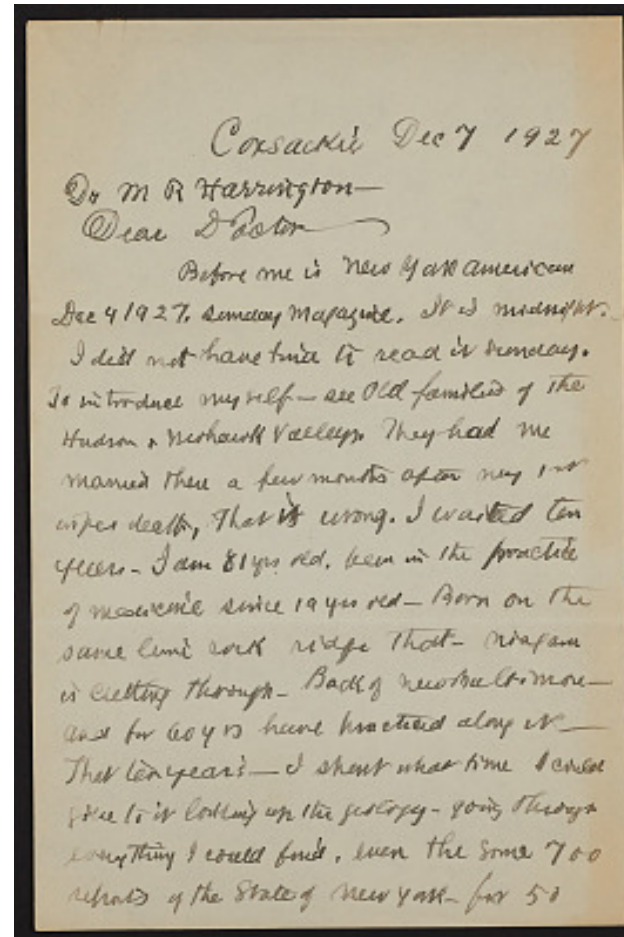 Coxsackie Dec 7 1927
Dr M R Harrington—
Dear Doctor
Before me is New York American
Dec 4 1927. Sunday Magazine. It is midnight.
I did not have time to read it Sunday.
To introduce myself— see Old families of the
Hudson & Mohawk Valleys They had me
married there a few months after my 1st
wifes death, That is wrong. I waited ten
years— I am 81 yrs old. been in the practice
of medicine since 19 yrs old— Born on the
same lime rock ridge that— Niagara
is cutting through— Back of New Baltimore—
and for 60 yrs have practiced along it—
That ten years— I spent what time I could
give to it looking up the geology— going through
everything I could find, even the some 700
reports of the State of New York— for 50